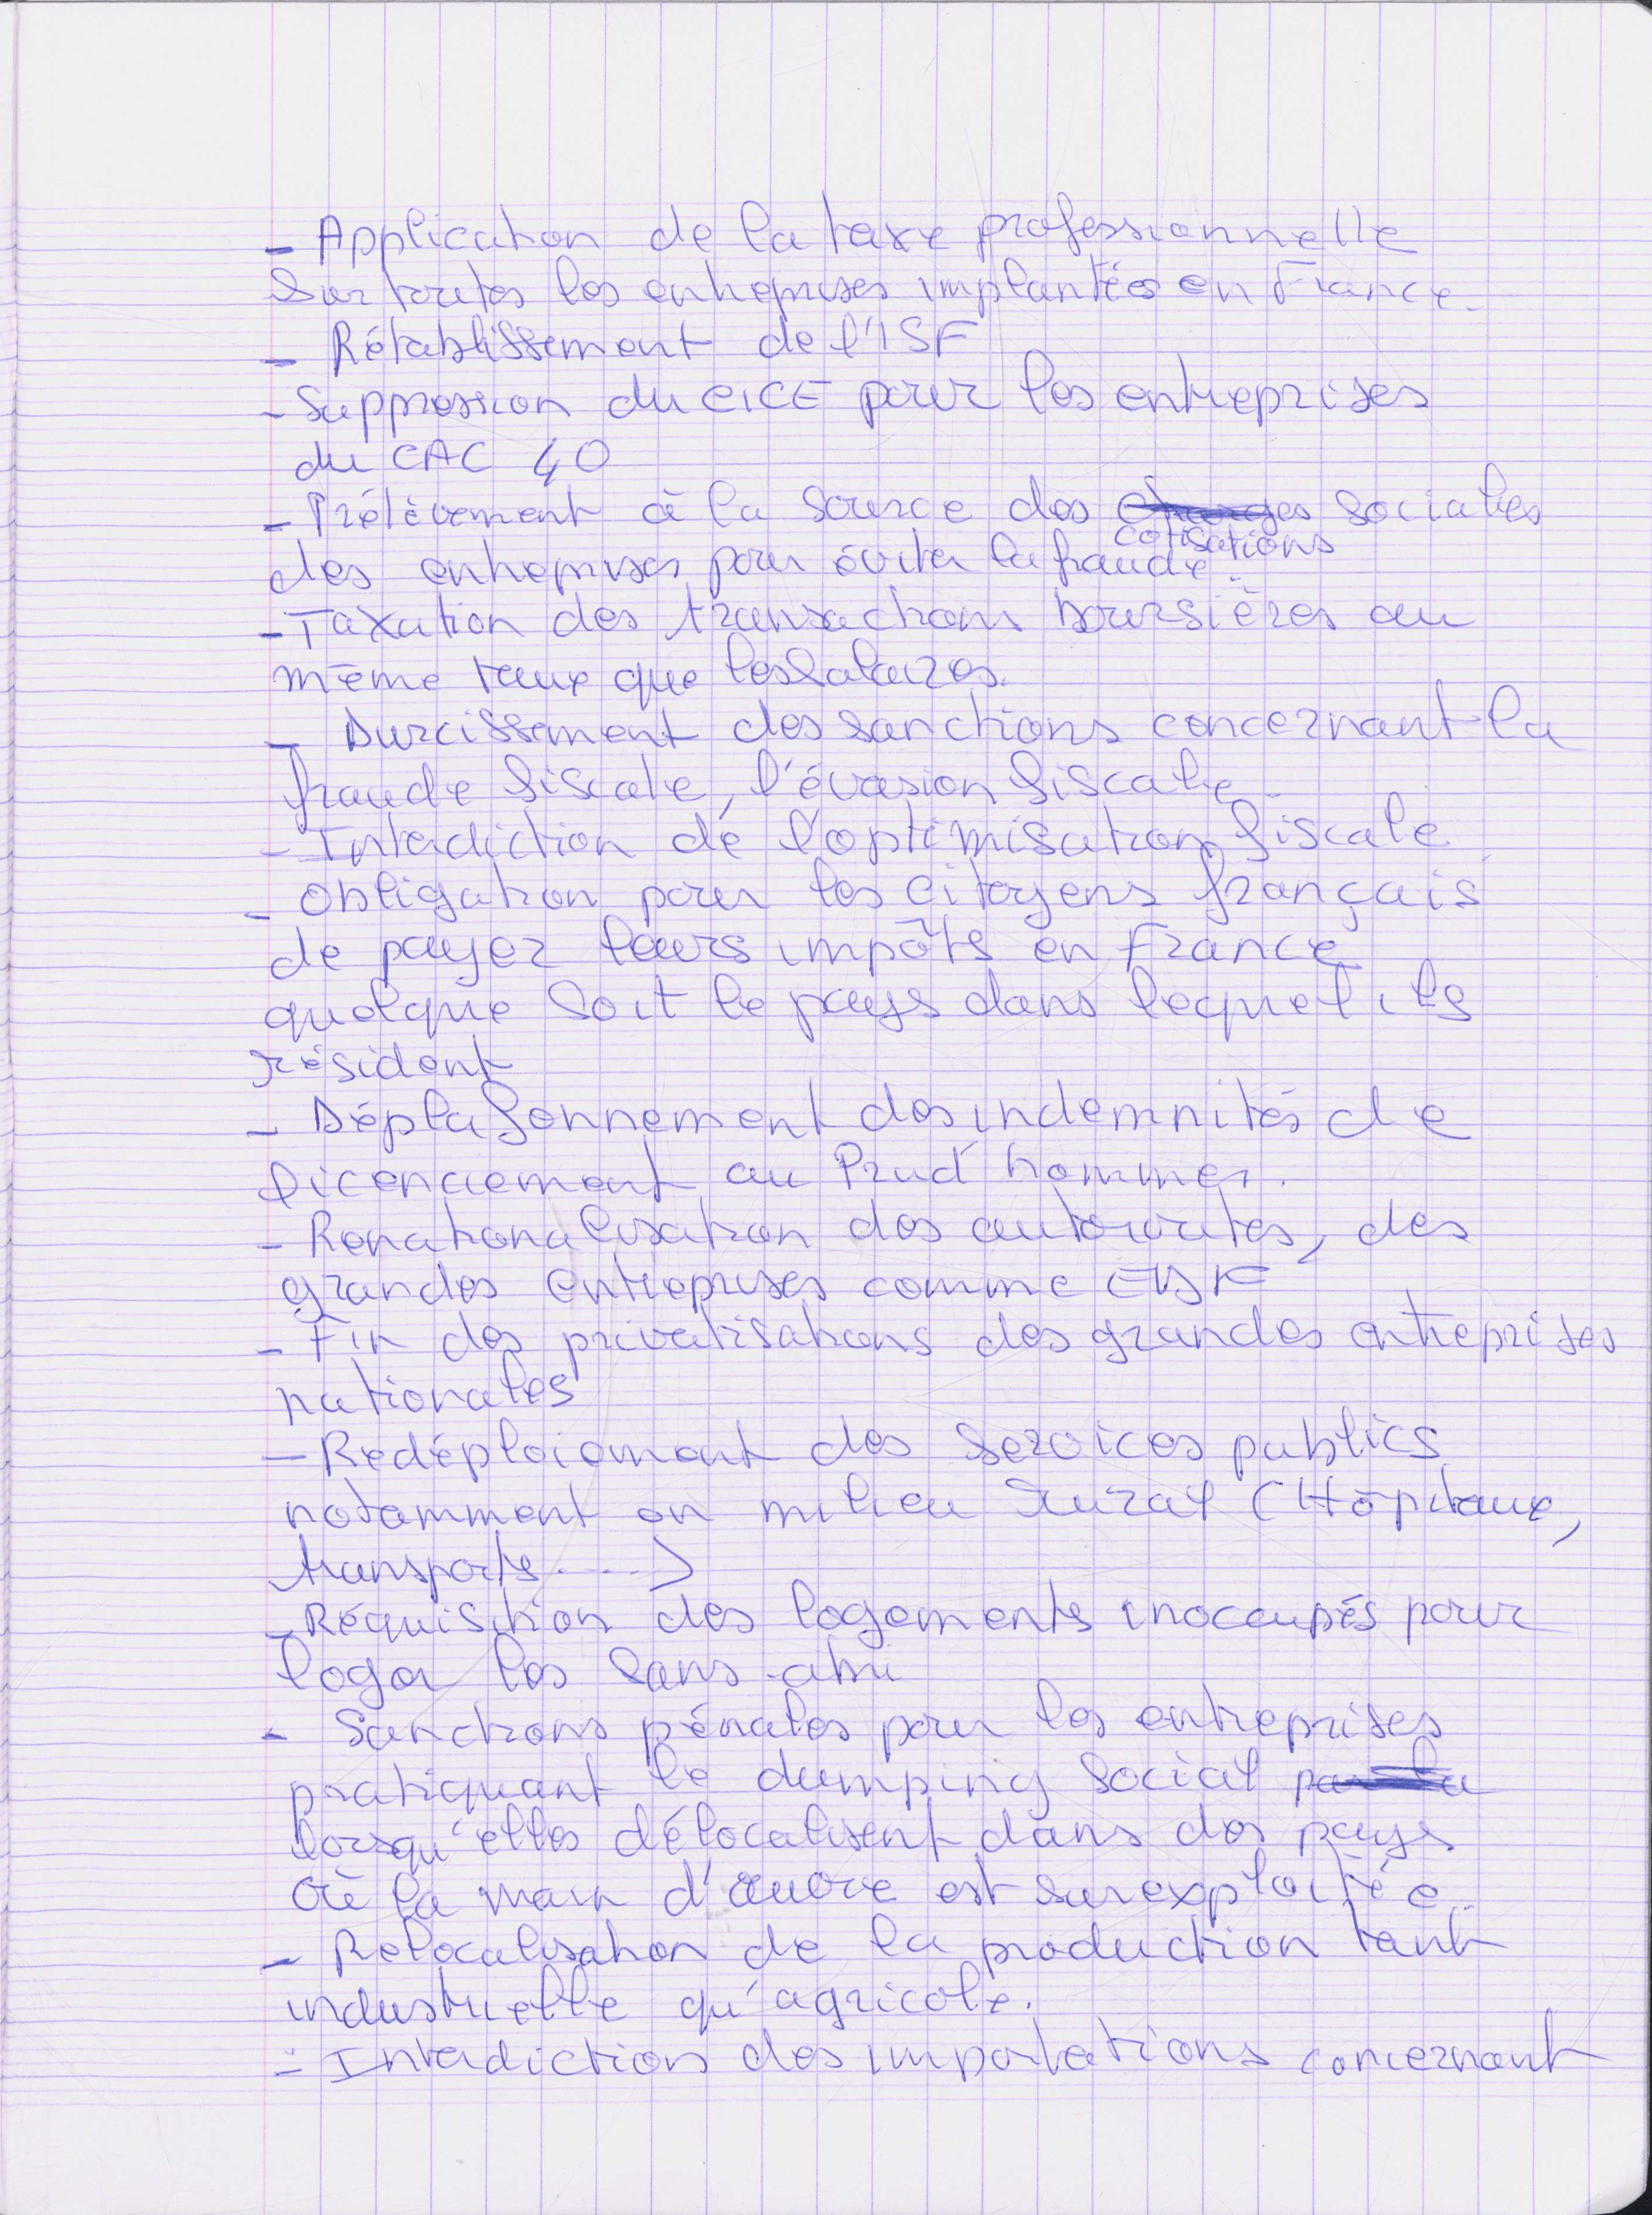 - Application de la taxe professionnelle
sur toutes les entreprises implantées en France.
- Rétablissement de l'ISF
- Suppression du CICE pour les entreprises
du CAC 40
- Prélèvement à la source des charges sociales
cotisations
des entreprises pour éviter la fraude.
- Taxation des transactions boursières au
même taux que les salaires.
- Durcissement des sanctions concernant la
fraude fiscale, l'évasion fiscale
- Interdiction de l'optimisation fiscale
- Obligation pour les citoyens français
de payer leurs impôts en France
quelque soit le pays dans lequel ils
résident
- Déplafonnement des indemnités de
licenciement au Prud'hommes.
- Renationalisation des autoroutes, des
grandes entreprises comme EDF
- Fin des privatisations des grandes entreprises
nationales
- Redéploiement des services publics
notamment en milieu rural (Hôpitaux,
transports....)
- Réquisition des logements inoccupés pour
loger les sans-abri
- Sanctions pénales pour les entreprises
pratiquant le dumping social par la
lorsqu'elles délocalisent dans des pays
où la main d'œuvre est surexploitée.
- Relocalisation de la production tant
industrielle qu'agricole.
- Interdiction des importations concernant